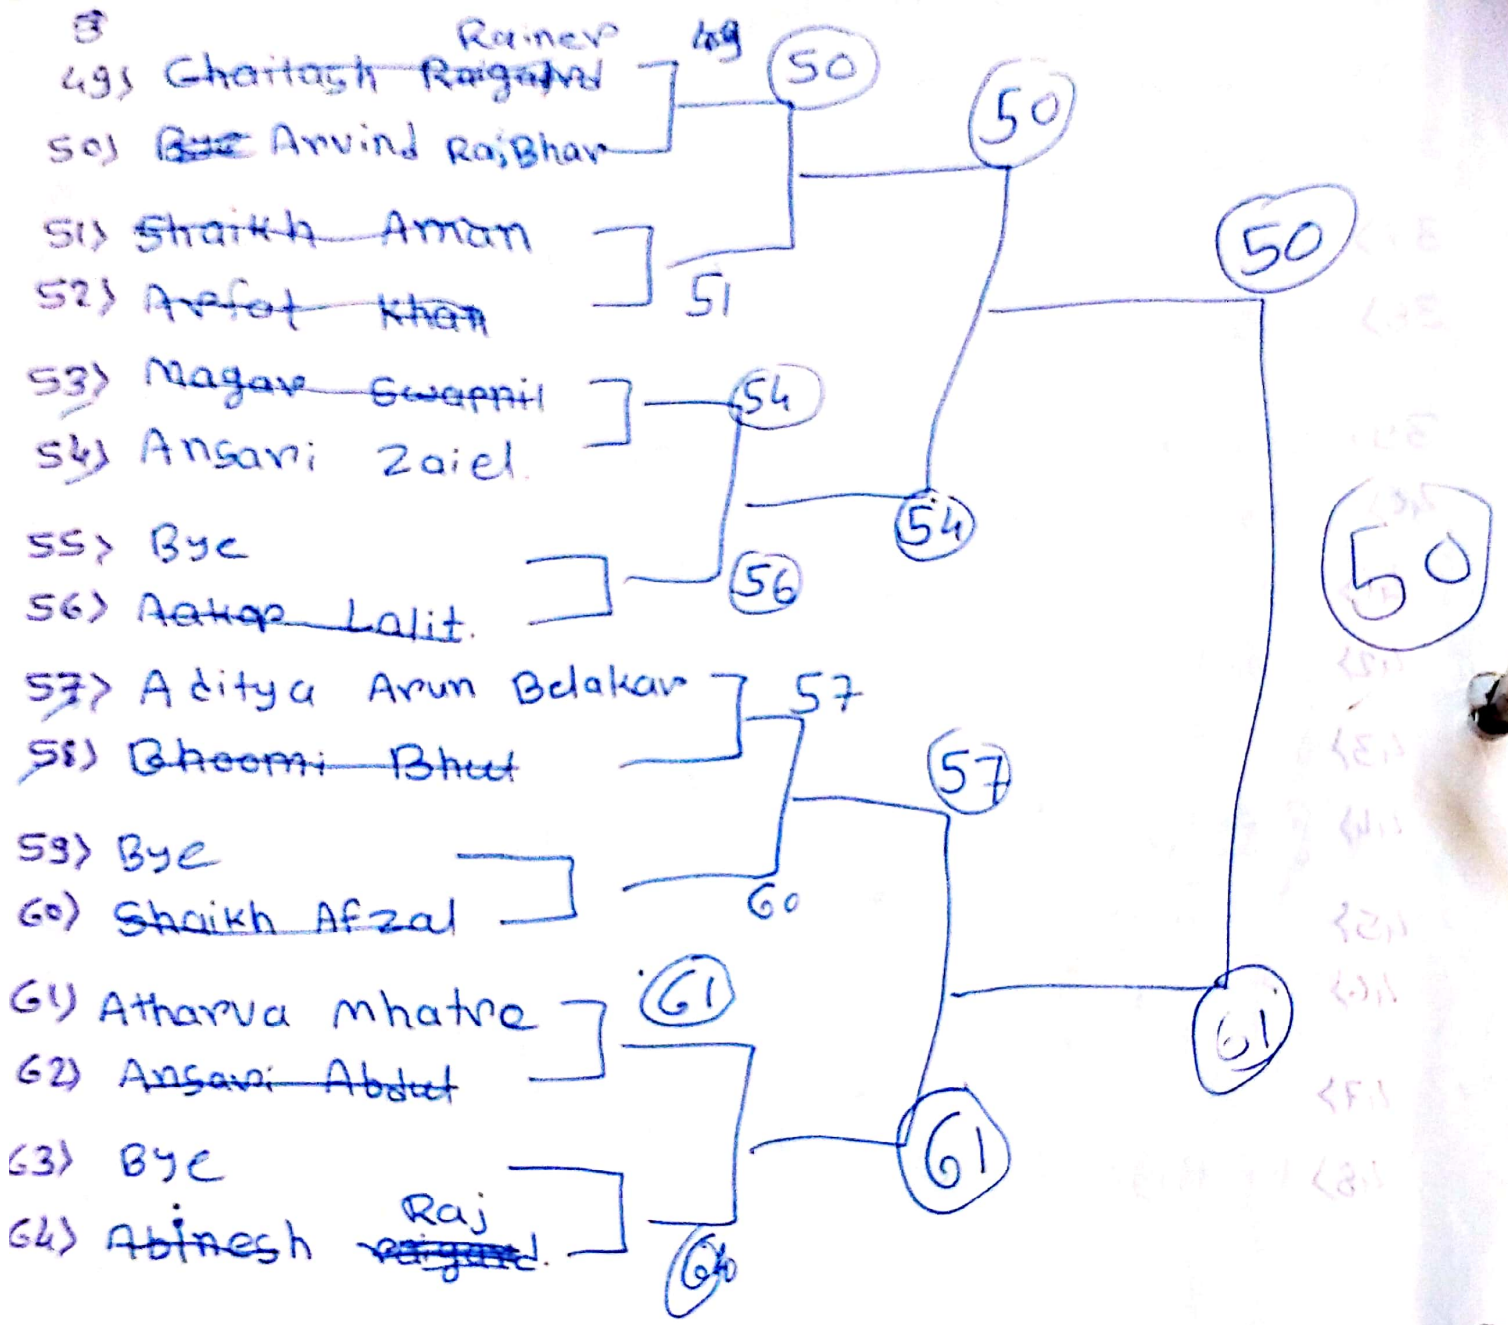 Rainer 49 50
49) Chaitash
50) Arvind RajBhar
50
51) Shaikh Aman
50
52) Arfat Khan
51
53) Magar Swapnil
54
54) Ansari Zaid.
54
55) Bye
50
56) Aakap Lalit.
56
57) Aditya Arun Belakar
57
58) Bhoomi Bhut
57
59) Bye
60) Shaikh Afzal
60
61) Atharva Mhatre
61
61
62) Ansari Abdul
63) Bye
61
Raj
64) Abinesh
64